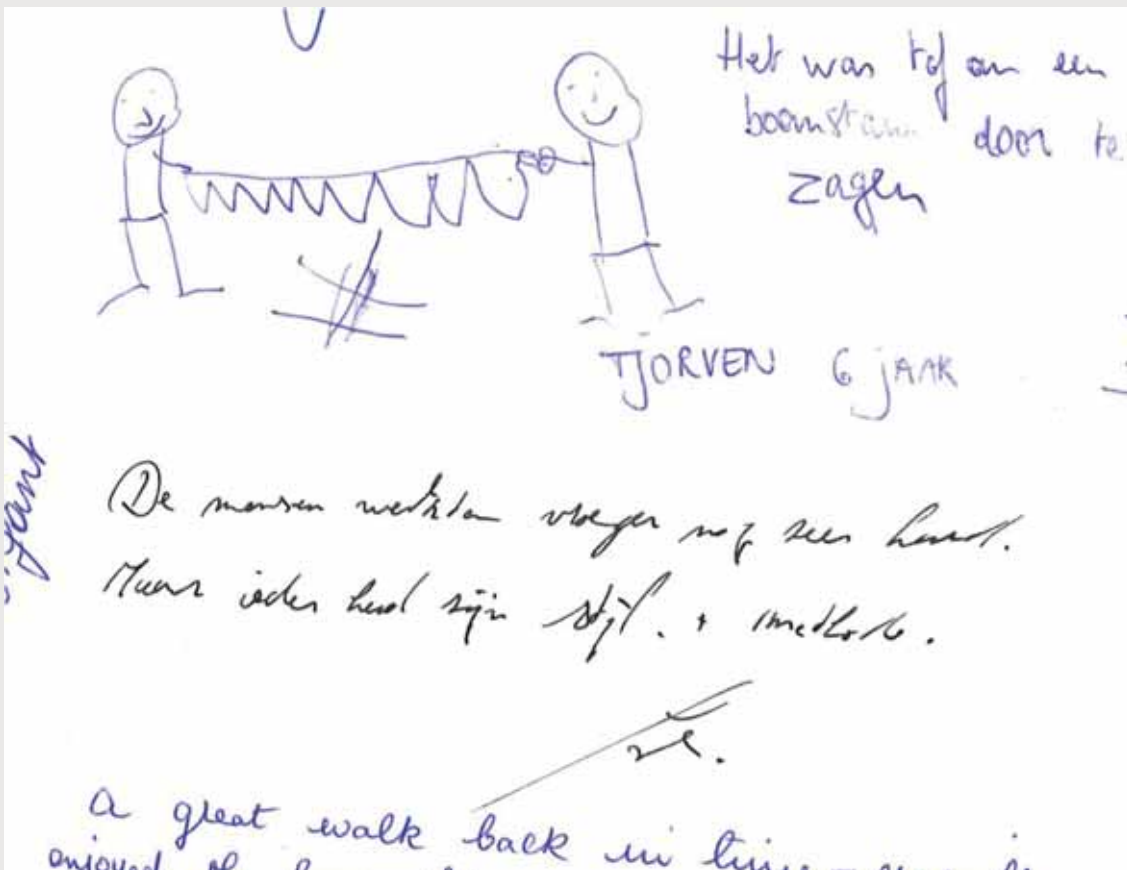 Het was tof om een
boomstam door te
zagen
TJORVEN 6 jAAR
De mensen werkten vroeger nog zeer hard.
Maar ieder had zijn stijl. + methode.
a great walk back in time
enjoyed